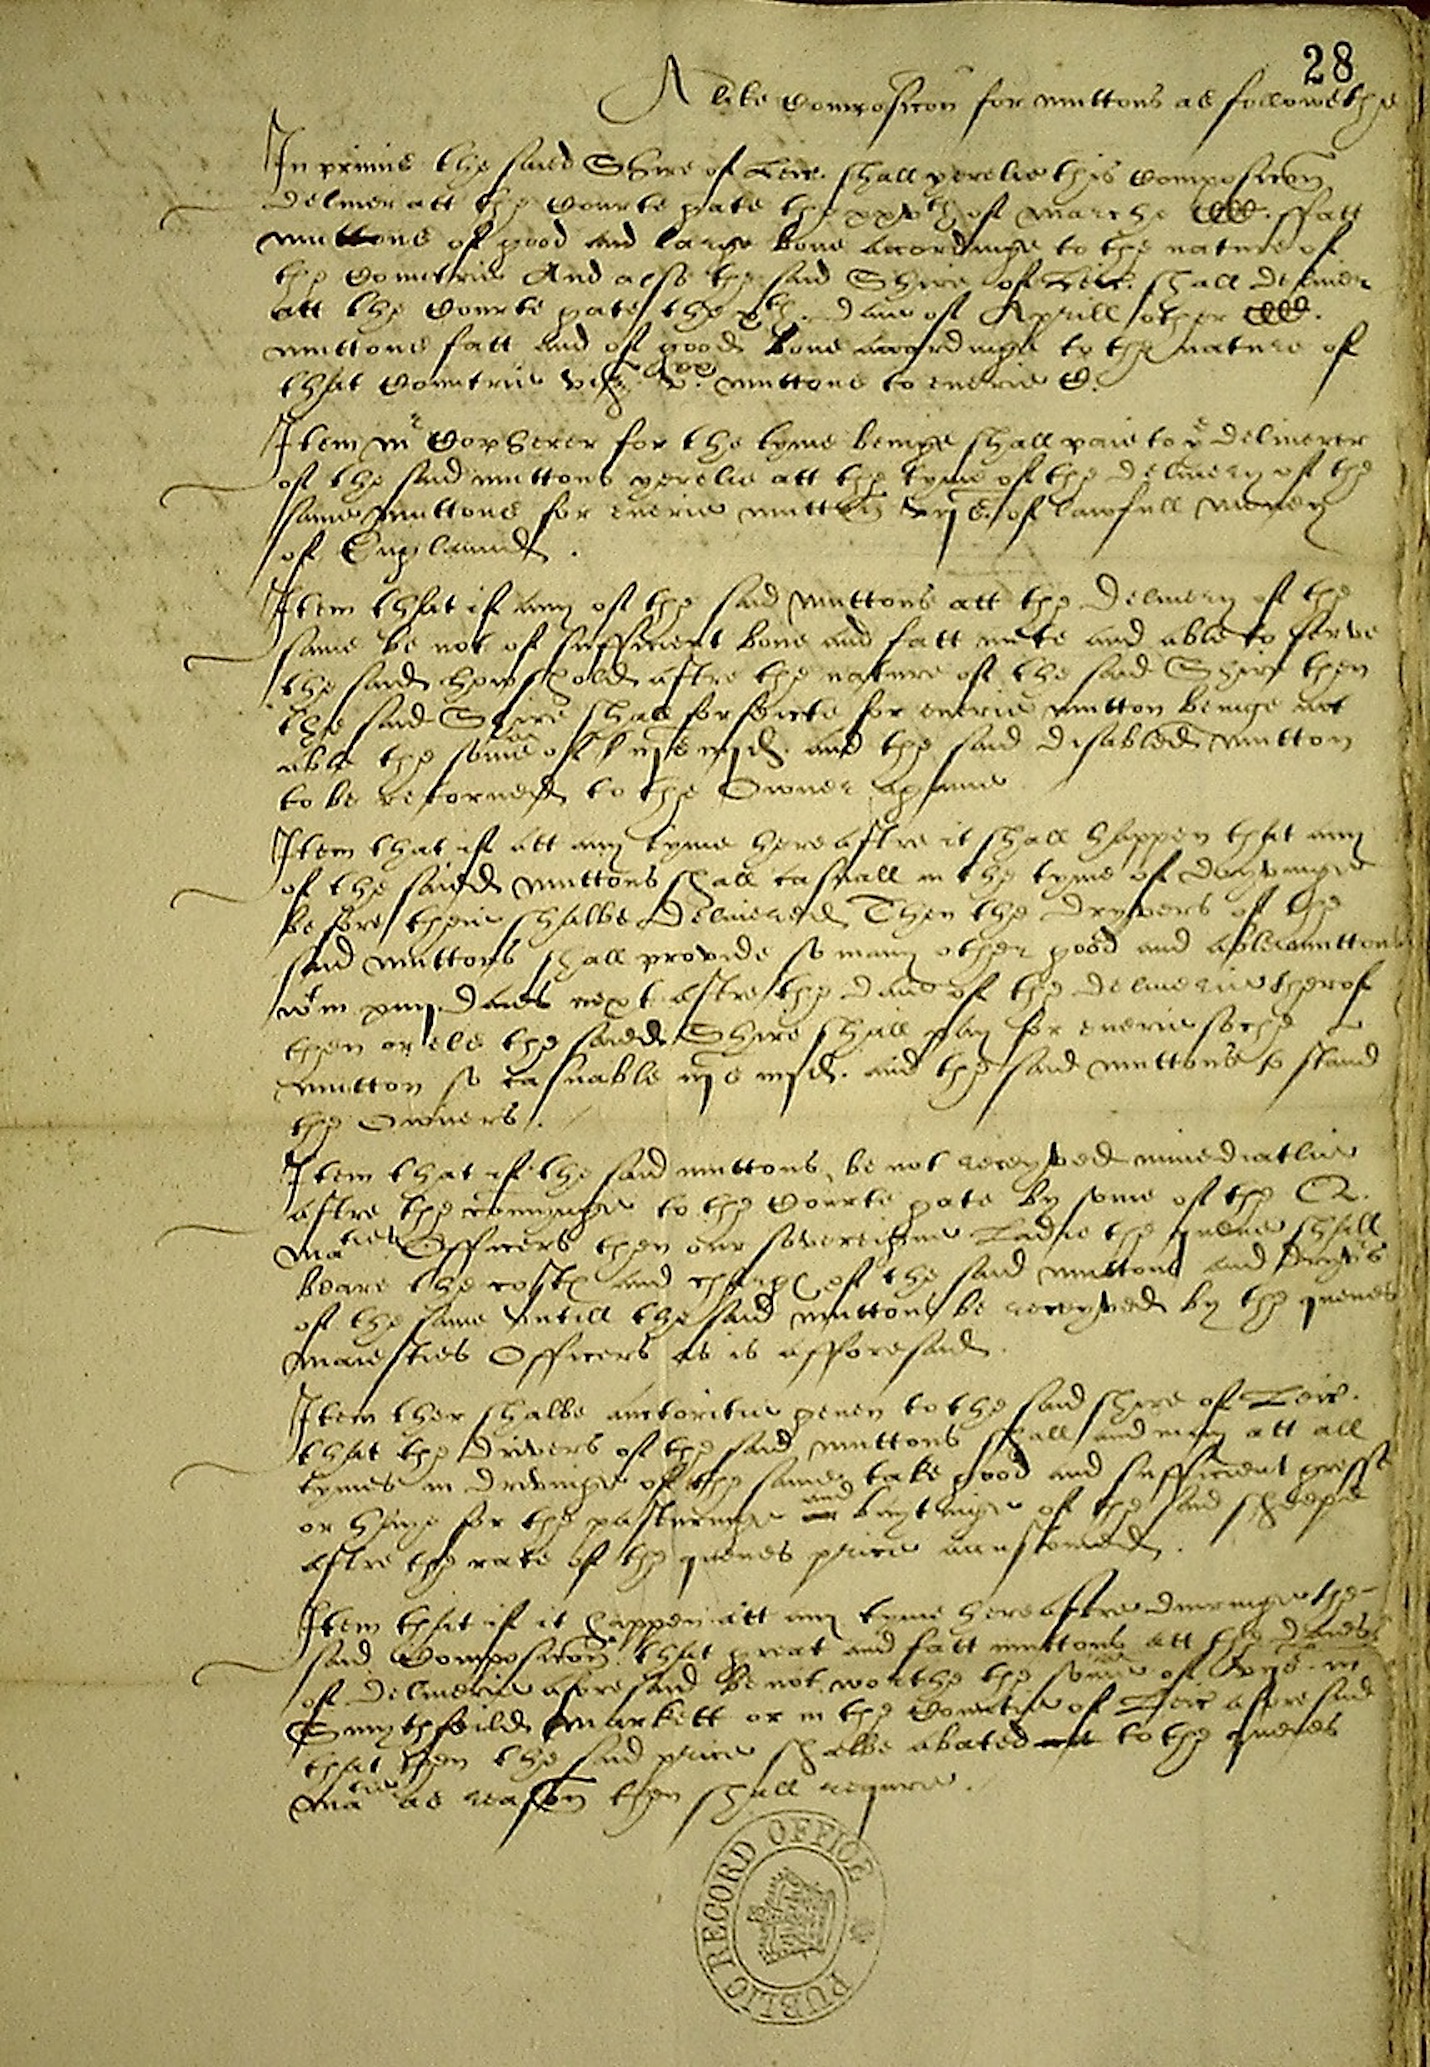 28
A like Composicon for muttons as followethe
In primis the saied Shire of Leic. shall yerelie this Composicon
deliuer att the Courte gate the xxvth of Marche CCCC. ffatt
muttons of good and large bone accordinge to the nature of
the Countrie And also the said Shire of Leic. shall deliuer
att the Courte gate the xth. daie of Aprill other CCCC.
muttons fatt and of good bone accordinge to the nature of
that Countrie viz. muttons to euerie C.
Item Mr Copherer for the tyme beinge shall paie to ye deliuerer
of the said muttons yerelie att the tyme of the deliuery of the
same muttons for euerie mutton of lawfull money
of Englaund.
Item that if any of the said muttons att the deliuery of the
same be not of sufficient bone and fatt mete and able to serve
the said howshold aftre the nature of the said Shire then
the said Shire shall forfeicte for euerie mutton beinge not
able the some of iijs iiijd. and the said disabled mutton
to be retorned to the Owner againe
Item that if att any tyme hereaftre it shall happen that any
of the saied muttons shall casuall in the tyme of dryvinge
before their shalbe deliuered Then the dryvers of the
said muttons shall provide so many other good and able muttons
wt in xiiij daies next aftre the daie of the deliuerie therof
then or els the saied Shire shall pay for euerie soche
mutton so casuable iijs iiijd. and the said muttons to stand
the Owners.
Item that if the said muttons be not receyved immediatlie
aftre the comynge to the Courte gate by some of the Q.
maties Officers then our sovereigne Ladie the quene shall
beare the costes and charges of the said muttons and dryvers
of the same vntill the said muttons be receyved by the quenes
maiesties Officers as is afforesaid.
Item ther shalbe auctoritie geuen to the said shire of Leic.
that the drivers of the said muttons shall and may att all
tymes in drivinge of the same take good and sufficient gresse
or haye for the pasturinge and baytinge of the said sheepe
aftre the rate of the quenes price accustomed.
Item that if it happen att any tyme hereaftre duringe the
said Composicon that great and fatt muttons att the daies
of deliuerie aforesaid be not worthe the some of in
Smythfeild Markett or in the Countie of Leic aforesaid
that then the said price shalbe abated to the quenes
matie as reason then shall require.
PUBLIC RECORD OFFICE